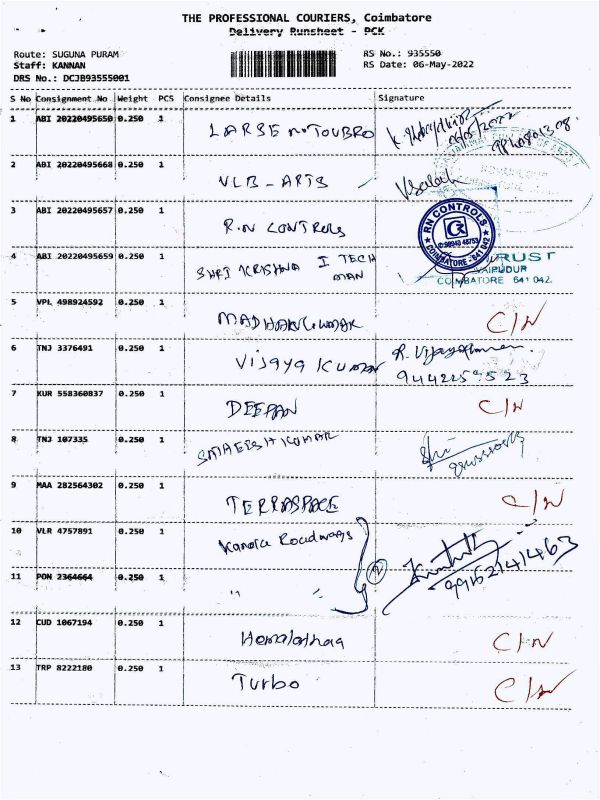 THE PROFESSIONAL COURIERS, Coimbatore
Delivery Runsheet - PCK
Route: SUGUNA PURAM
Staff: KANNAN
DRS No.: DCJB93555001
RS No.: 935550
RS Date: 06-May-2022
S No Consignment No Weight PCS Consignee Details Signature
1 ABI 20220495650 0.250 1 LARSE n TOUBRO
2 ABI 20220495668 0.250 1 VLB - ARTS
3 ABI 20220495657 0.250 1 R.N CONTROLS
RN CONTROLS
COIMBATORE - 641 042
4 ABI 20220495659 0.250 1 SHRI KRISHNA I TECH
MAN
COIMBATORE 641 042.
5 VPL 498924592 0.250 1 MADHANKUMAR C/N
6 TNJ 3376491 0.250 1 Vijaya KUMAR R. Vijayakumar
9442259523
7 KUR 558360837 0.250 1 DEEPAN C/N
8 TNJ 107335 0.250 1 SATHEESH KUMAR Shri
9 MAA 282564302 0.250 1 TERRASPACE C/N
10 VLR 4757891 0.250 1 Kanora Roadways
11 PON 2364664 0.250 1 " "
2
99162141463
12 CUD 1067194 0.250 1 Hemalathaa C/N
13 TRP 8222180 0.250 1 Turbo C/N